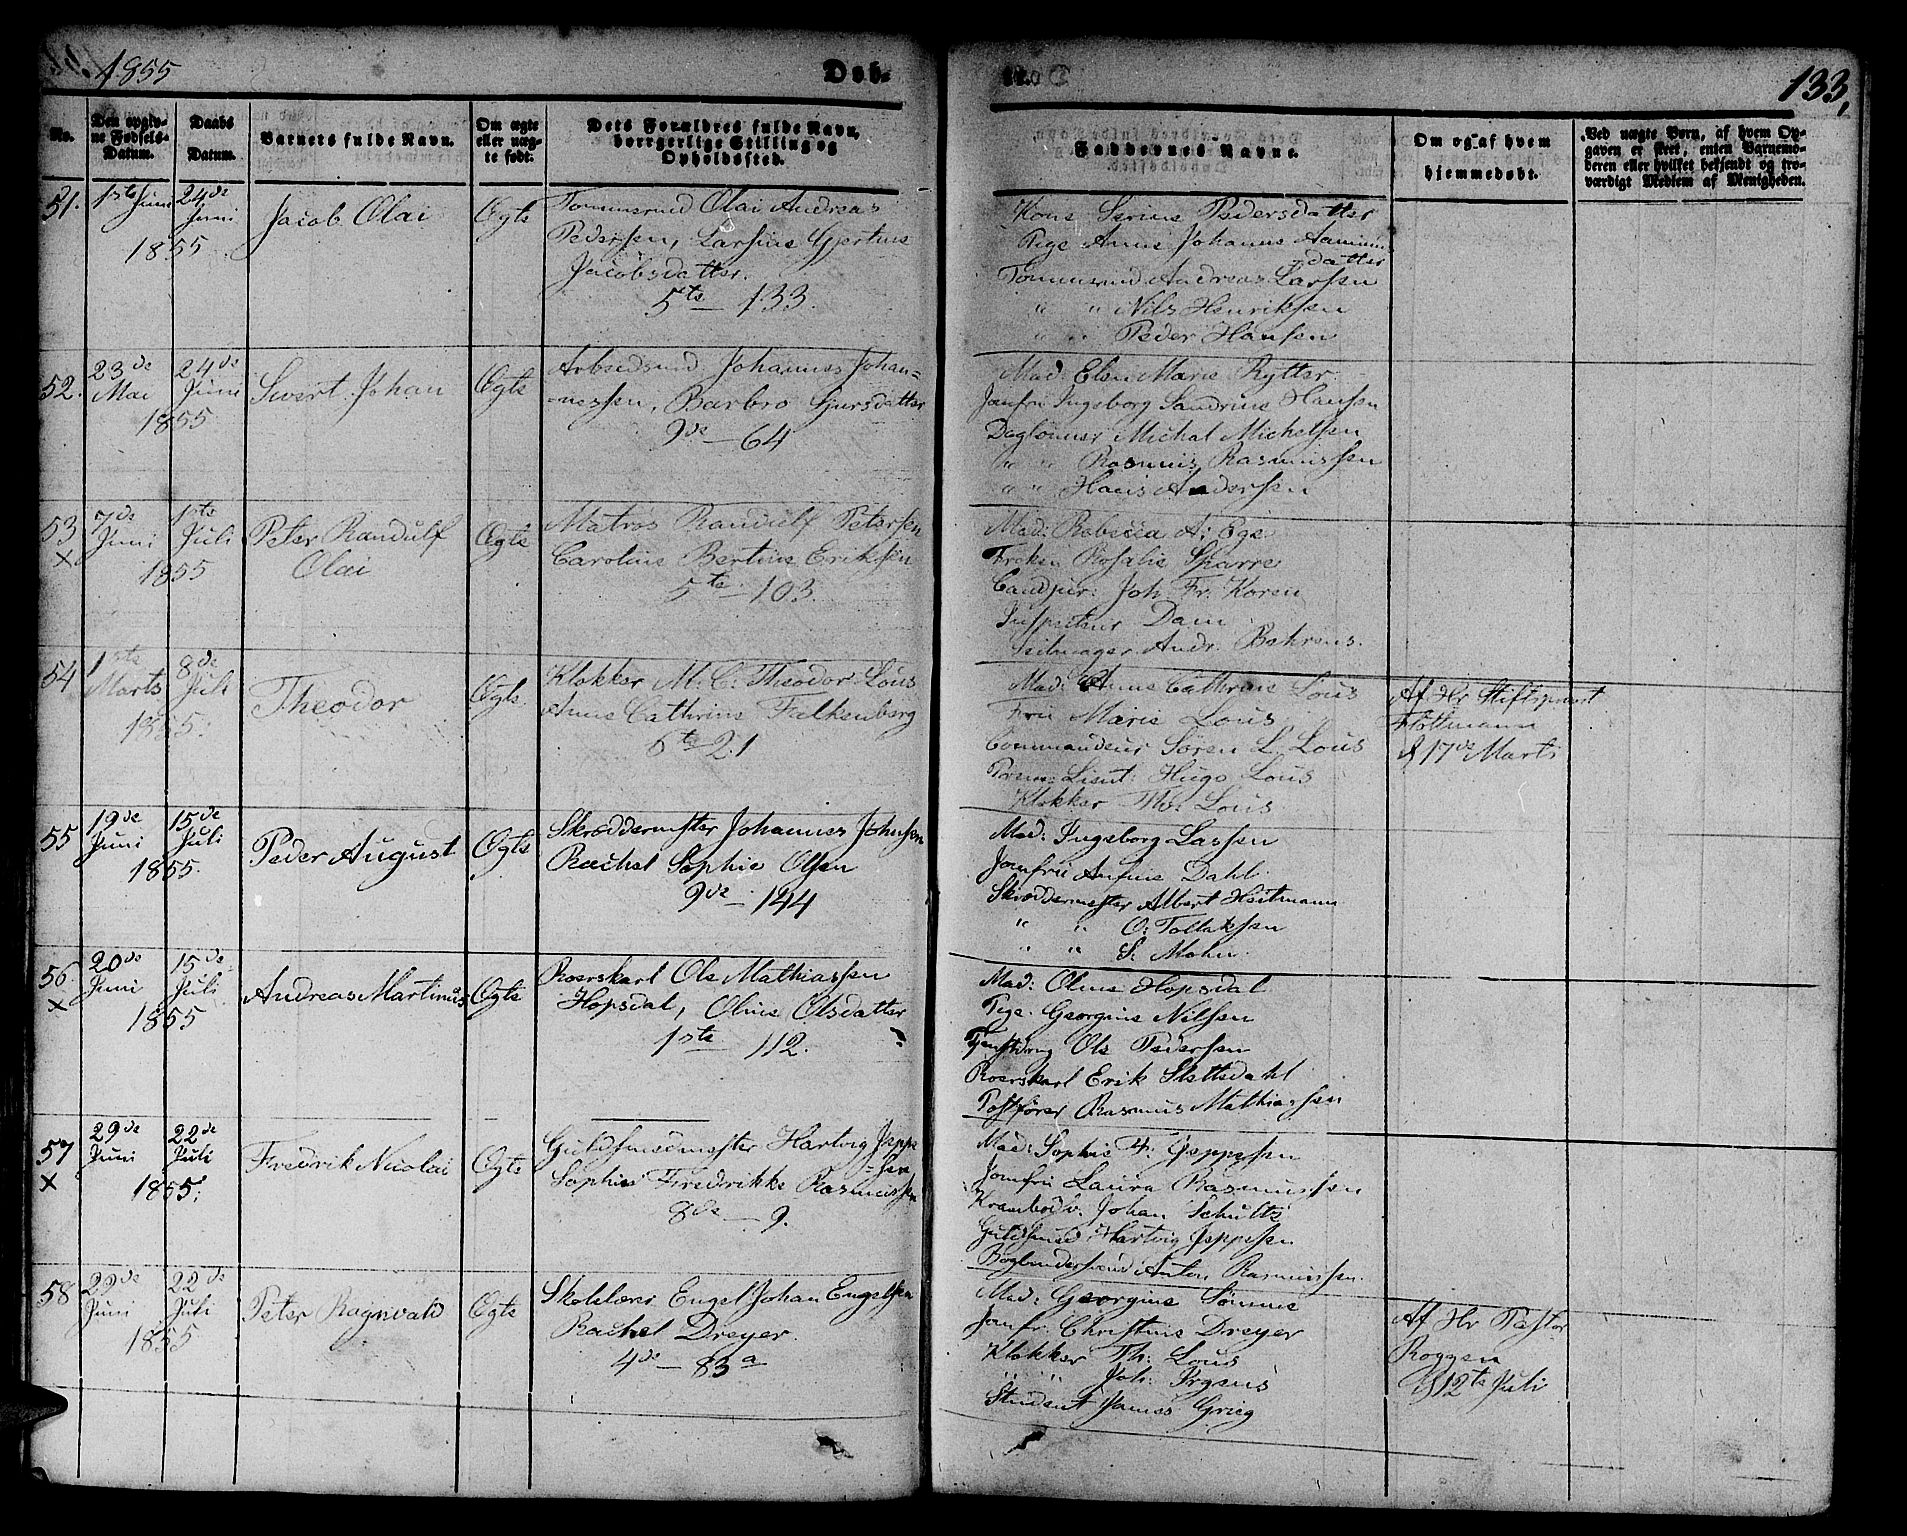 1855
Døb-
te.
133,
No.
Den opgiv-
ne Fødsels-
Datum.
Daabs
Datum.
Barnets fulde Navn.
Om ægte
eller uæg-
te født.
Dets Forældres fulde Navn,
borgerlige Stilling og
Opholdssted.
Faddernes Navne.
Om og af hvem
hjemmedøbt.
Ved uægte Børn, af hvem Op-
gaven er skeet, enten Barnemo-
deren eller hvilket bekjendt og tro-
værdigt Medlem af Menigheden.
51.
1ste Juni
24de
Juni
1855
Jacob Olai
Ægte
Tømmermd Olai Andreas
Pedersen, Larsine Gjertine
Jacobsdatter.
5te — 133.
Kone Serine Pedersdatter
Pige Anne Johanne
datter
Tømmermd Andreas Larsen
" " Nils Henriksen
" " Peder Hansen
52.
23de
Mai
24de
Juni
1855
Sivert Johan
Ægte
Arbeidsmd. Johannes Johan-
-nessen, Barbro Gjursdatter
9de — 64
Mad. Elen Marie Rytter.
Jomfru Ingeborg Sandrine Hansen
Dagløner Michal Michelsen
" " Rasmus Rasmussen
" " Hans Andersen
53
x
7de
Juni
1ste
Juli
1855
Peter Randulf
Olai
Ægte
Matros Randulf Petersen
Caroline Bertine Eriksen
5te — 103.
Mad: Rebecca A: Ege
Frøken Rosalie Sparre
Candjur: Joh. Fr. Koren
Inspecteur Dam
Seilmager Andr. Behrens.
54
1ste
Marts
8de
Juli
1855.
Theodor
Ægte
Klokker M. C. Theodor Lous
Anne Cathrine Falkenberg
6te 21
Mad: Anne Cathrine Lous
Fru Marie Lous
Commandeur Søren L. Lous
Prem: Lieut: Hugo Lous
Klokker Th: Lous
Af Hr Stiftsprovst
Flottmann
d 17de Marts
55
19de
Juni
15de
Juli
1855.
Peder August
Ægte
Skræddermester Johannes Johnsen
Rachel Sophie Olsen
9de — 144
Mad: Ingeborg Lassen
Jomfru Dahl.
Skræddermester Albert Heitmann
" " O: Tollaksen
" " S. Mohn.
56.
x
20de
Juni
15de
Juli
1855
Andreas Martinus
Ægte
Roerskarl Ole Mathiassen
Hopsdal, Oline Olsdatter
1ste 112.
Mad: Oline Hopsdal
Pige. Georgine Nilsen
Tjenstdreng Ole Pedersen
Roerskarl Erik Slettedahl
Postfører Rasmus Mathiassen
57
x
29de
Juni
22de
Juli
1855.
Fredrik Nicolai
Ægte
Guldsmedmester Hartvig Jeppe
-sen
Sophie Frederikke Rasmussen
8de — 9.
Mad: Sophie H. Jeppesen
Jomfru Laura Rasmussen
Krambodv. Johan Schultz
Guldsmed Hartvig Jeppesen
Bogbindersvend Anton Rasmussen.
58
29de
Juni
22de
Juli
1855
Peter Ragnvald
Ægte
Skolelærer Engel Johan Engelsen
Rachel Dreyer.
4de — 83a
Mad: Georgine Sømme
Jomfr: Christine Dreyer
Klokker Th: Lous
" " Joh. Irgens
Student James Grieg
Af Hr Pastor
Roggen
d 12te Juli